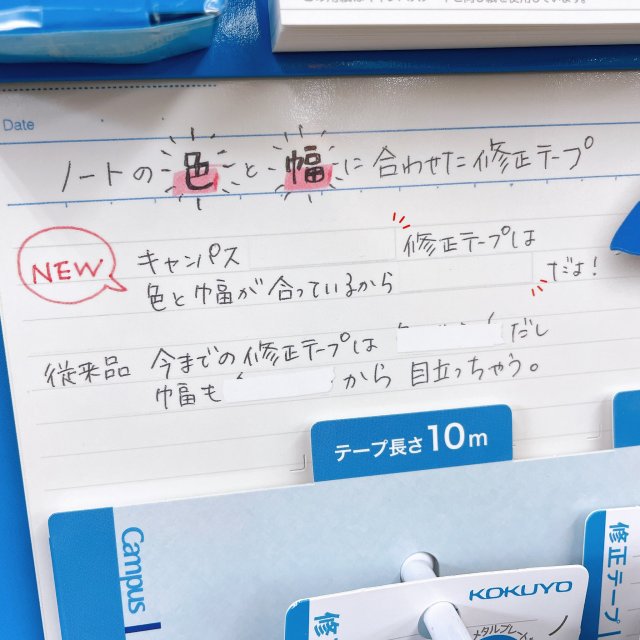 Date
ノートの色と幅に合わせた修正テープ
NEW
キャンパス 修正テープは
色と幅が合っているから だよ!
従来品 今までの修正テープは だし
幅も から 目立っちゃう。
テープ長さ10m
Campus
KOKUYO
修正テープ
修